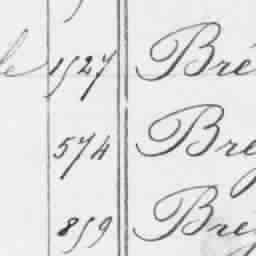 le 1527 Bré
574 Bre
859 Bre